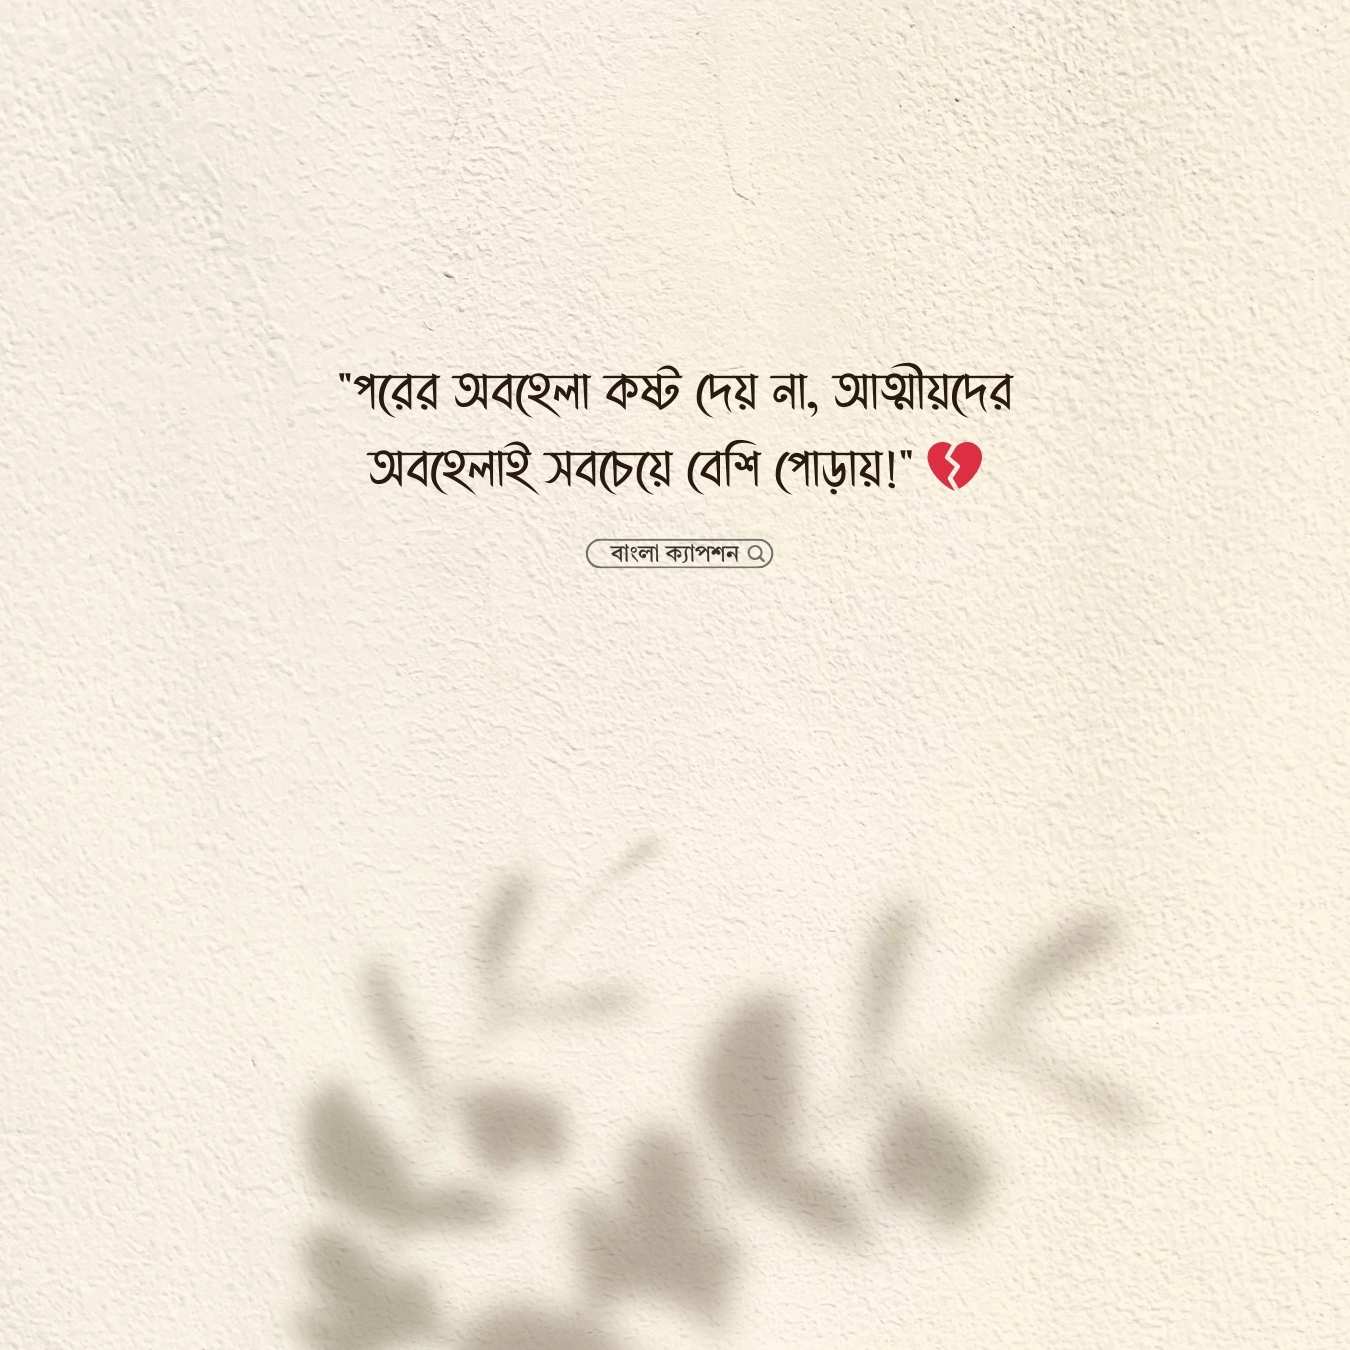 "পরের অবহেলা কষ্ট দেয় না, আত্মীয়দের
অবহেলাই সবচেয়ে বেশি পোড়ায়!" 💔
বাংলা ক্যাপশন